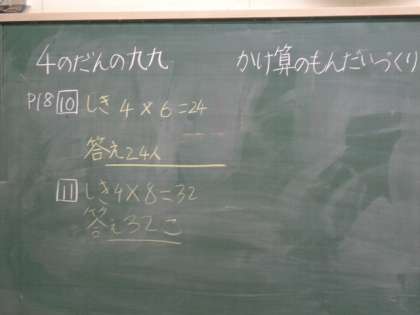 4のだんの九九
かけ算のもんだいづくり
P18 10 しき 4×6=24
答え24人
11 しき4×8=32
答え32こ